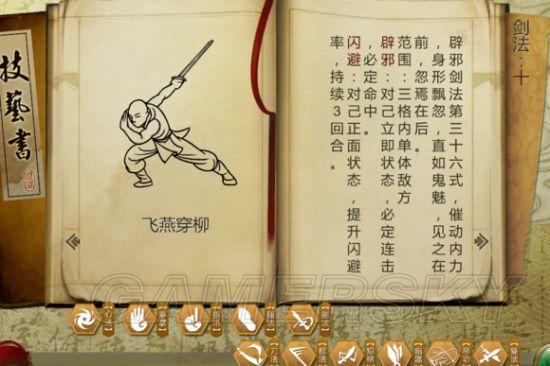 剑法：十
辟邪剑法第三十六式，催动内力
，身形飘忽，直如鬼魅，见之在
前，忽焉在后。
范围：三格内单体敌方
辟邪：对己立即状态，必定连击
，必定命中。
闪避：对己正面状态，提升闪避
率，持续3回合。
技藝書
飞燕穿柳
GAMERSKY
心法
拳掌
指爪
腿法
剑法
刀法